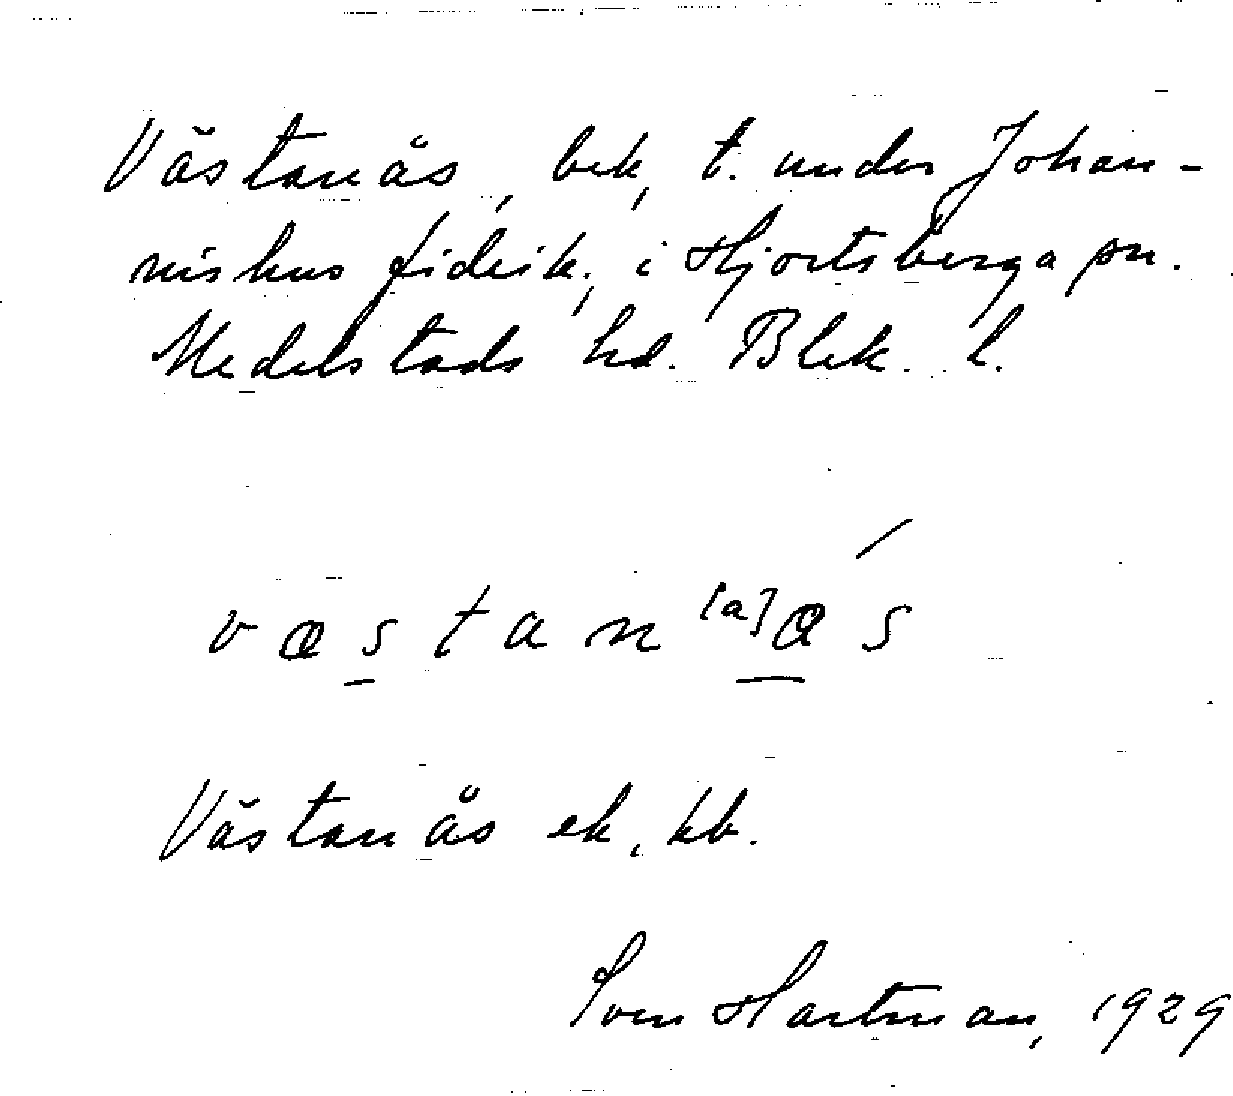 Västanås, bek, t. under Johan-
nishus fideik., i Hjortsberga sn.
Medelstads hd. Blek. l.
væstan[a]ás
Västanås ek, kb.
Sven Hartman, 1929